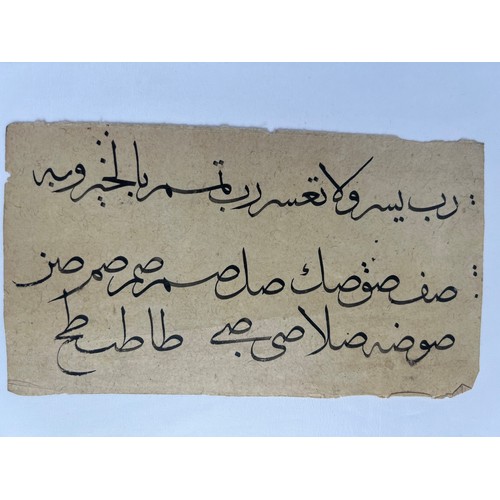 رب يسر ولا تعسر رب تمم بالخير وبه
صف صق صك صل صم صم صم صن
صو صه صلا صى صے طا طب طح